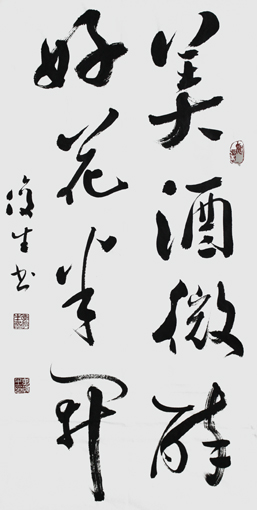 美酒微醉
好花半開
復生书